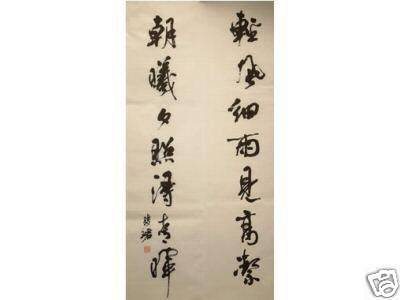 輕風細雨見高潔
朝曦夕照得春暉